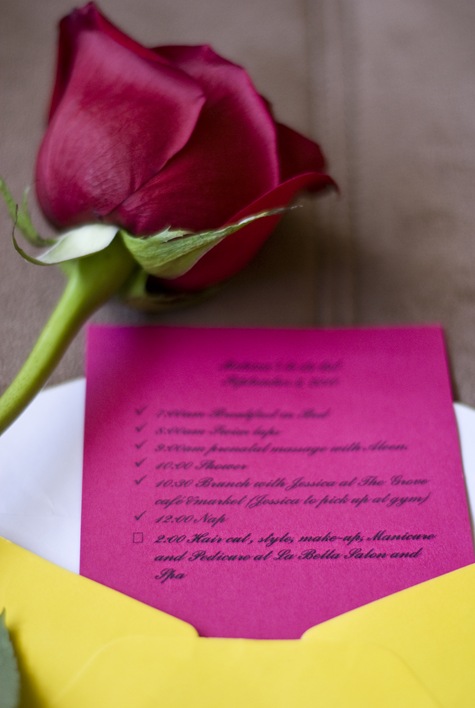 ✓ 7:00am Breakfast in Bed
✓ 8:00am Swim laps
✓ 9:00am prenatal massage with
✓ 10:00 Shower
✓ 10:30 Brunch with Jessica at The Grove
café & market (Jessica to pick up at gym)
✓ 12:00 Nap
☐ 2:00 Hair cut, style, make-up, Manicure
and Pedicure at La Bella Salon and
Spa